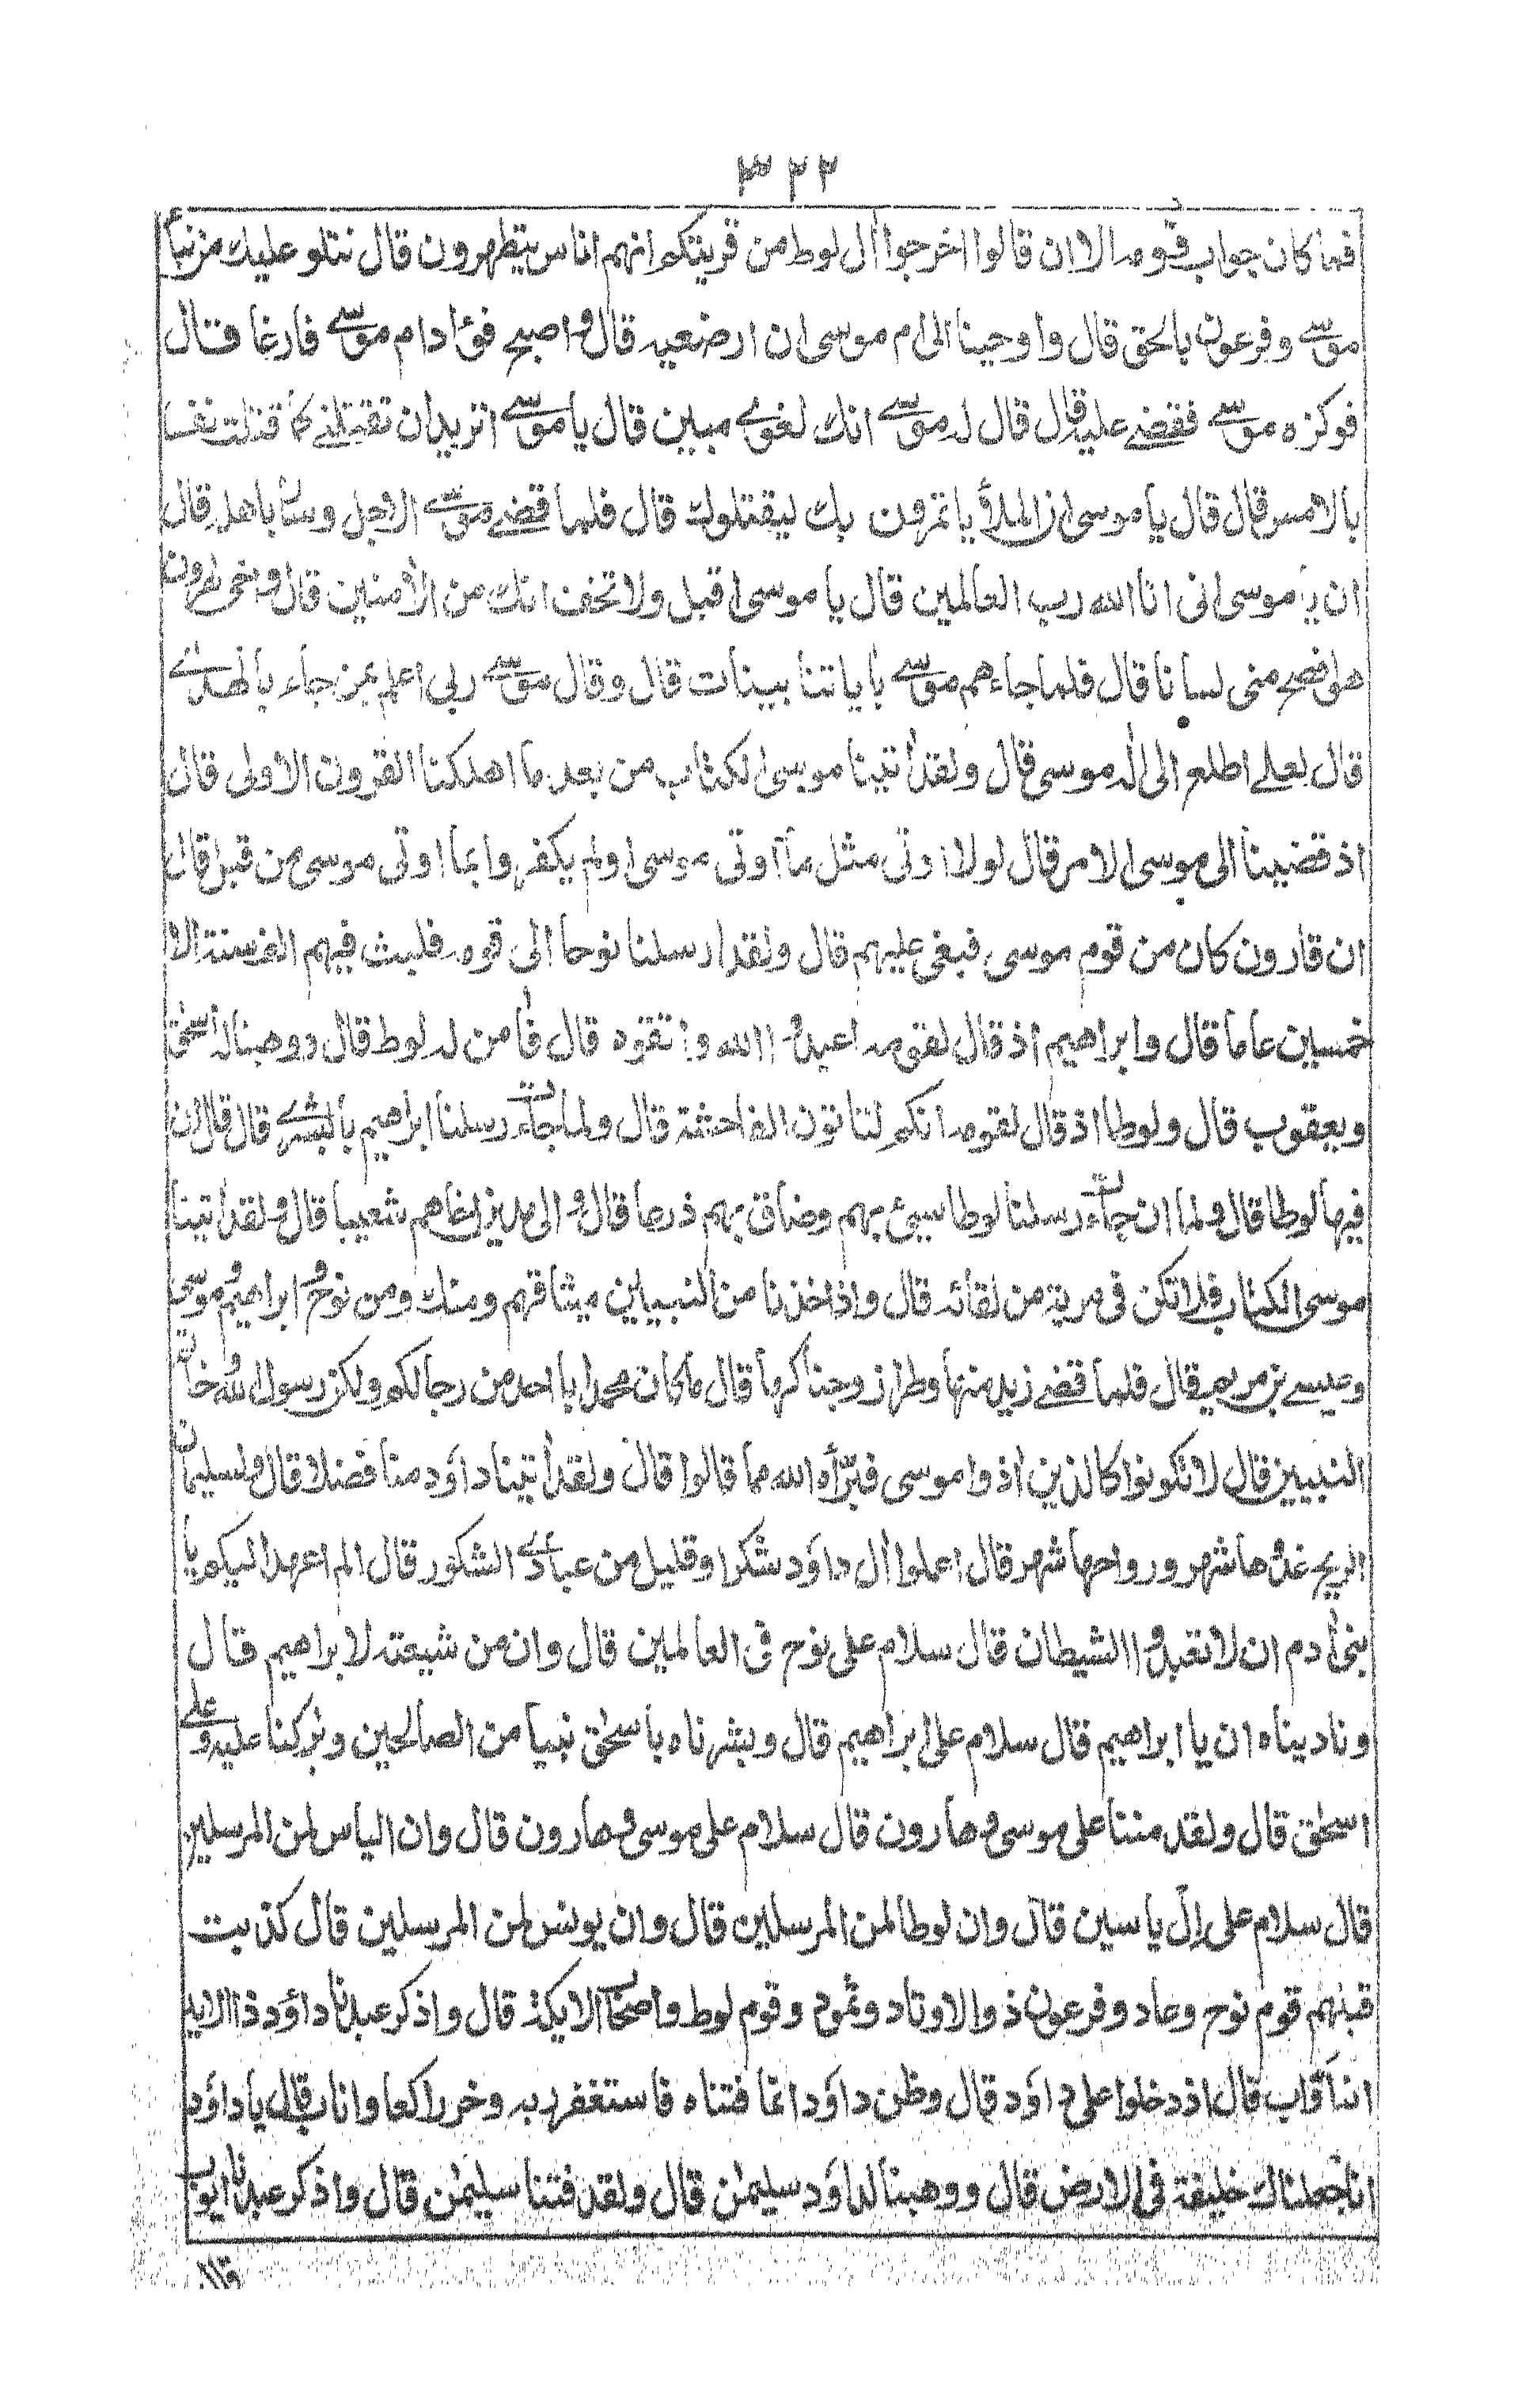 ٣٢٢
فما كان جواب قومه الا ان قالوا اخرجوا أل لوط من قريتكم انهم اناس يتطهرون قال نتلو عليك من نبأ
موسى وفرعون بالحق قال واوحينا الى ام موسى ان ارضعيه قال واصبح فؤاد ام موسى فارغا قال
فوكزه موسى فقضى عليه قال قال له موسى انك لغوى مبين قال يا موسى اتريد ان تقتلنى كما قتلت نفسا
بالامس قال قال يا موسى ان الملأ يأتمرون بك ليقتلوك قال فلما قضى موسى الاجل وسار باهله قال
ان يا موسى انى انا الله رب العالمين قال يا موسى اقبل ولا تخف انك من الأمنين قال واخى هرون
هو افصح منى لسانا قال فلما جاءهم موسى بأياتنا بينات قال وقال موسى ربى اعلم بمن جاء بالهدى
قال لعلى اطلع الى اله موسى قال ولقد أتينا موسى الكتاب من بعد ما اهلكنا القرون الاولى قال
اذ قضينا الى موسى الامر قال لولا اوتى مثل ما اوتى موسى اولم يكفروا بما اوتى موسى من قبل قال
ان قارون كان من قوم موسى فبغى عليهم قال ولقد ارسلنا نوحا الى قومه فلبث فيهم الف سنة الا
خمسين عاما قال وابراهيم اذ قال لقومه اعبدوا الله واتقوه قال فأمن له لوط قال ووهبنا له اسحق
ويعقوب قال ولوطا اذ قال لقومه انكم لتاتون الفاحشة قال ولما جاءت رسلنا ابراهيم بالبشرى قال قال ان
فيها لوطا قال ولما ان جاءت رسلنا لوطا سيئ بهم وضاق بهم ذرعا قال والى مدين اخاهم شعيبا قال ولقد أتينا
موسى الكتاب فلا تكن فى مرية من لقائه قال واذ اخذنا من النبيين ميثاقهم ومنك ومن نوح وابراهيم وموسى
وعيسى بن مريم قال فلما قضى زيد منها وطرا زوجناكها قال ما كان محمد ابا احد من رجالكم ولكن رسول الله وخاتم
النبيين قال لا تكونوا كالذين اذوا موسى فبرّأه الله مما قالوا قال ولقد أتينا داؤد منا فضلا قال ولسليمان
الريح غدوها شهر ورواحها شهر قال اعملوا أل داؤد شكرا وقليل من عبادى الشكور قال الم اعهد اليكم يا
بنى أدم ان لا تعبدوا الشيطان قال سلام على نوح فى العالمين قال وان من شيعته لابراهيم قال
وناديناه ان يا ابراهيم قال سلام على ابراهيم قال وبشرناه باسحق نبيا من الصالحين وبركنا عليه وعلى
اسحق قال ولقد مننا على موسى وهارون قال سلام على موسى وهارون قال وان الياس لمن المرسلين
قال سلام على إل ياسين قال وان لوطا لمن المرسلين قال وان يونس لمن المرسلين قال كذبت
قبلهم قوم نوح وعاد وفرعون ذو الاوتاد وثمود وقوم لوط واصحاب الايكة قال واذكر عبدنا داؤد ذا الايد
انه أوّاب قال اذ دخلوا على داؤد قال وظن داؤد انما فتناه فاستغفر ربه وخر راكعا واناب قال يا داؤد
انا جعلناك خليفة فى الارض قال ووهبنا لداؤد سليمن قال ولقد فتنا سليمن قال واذكر عبدنا ايوب